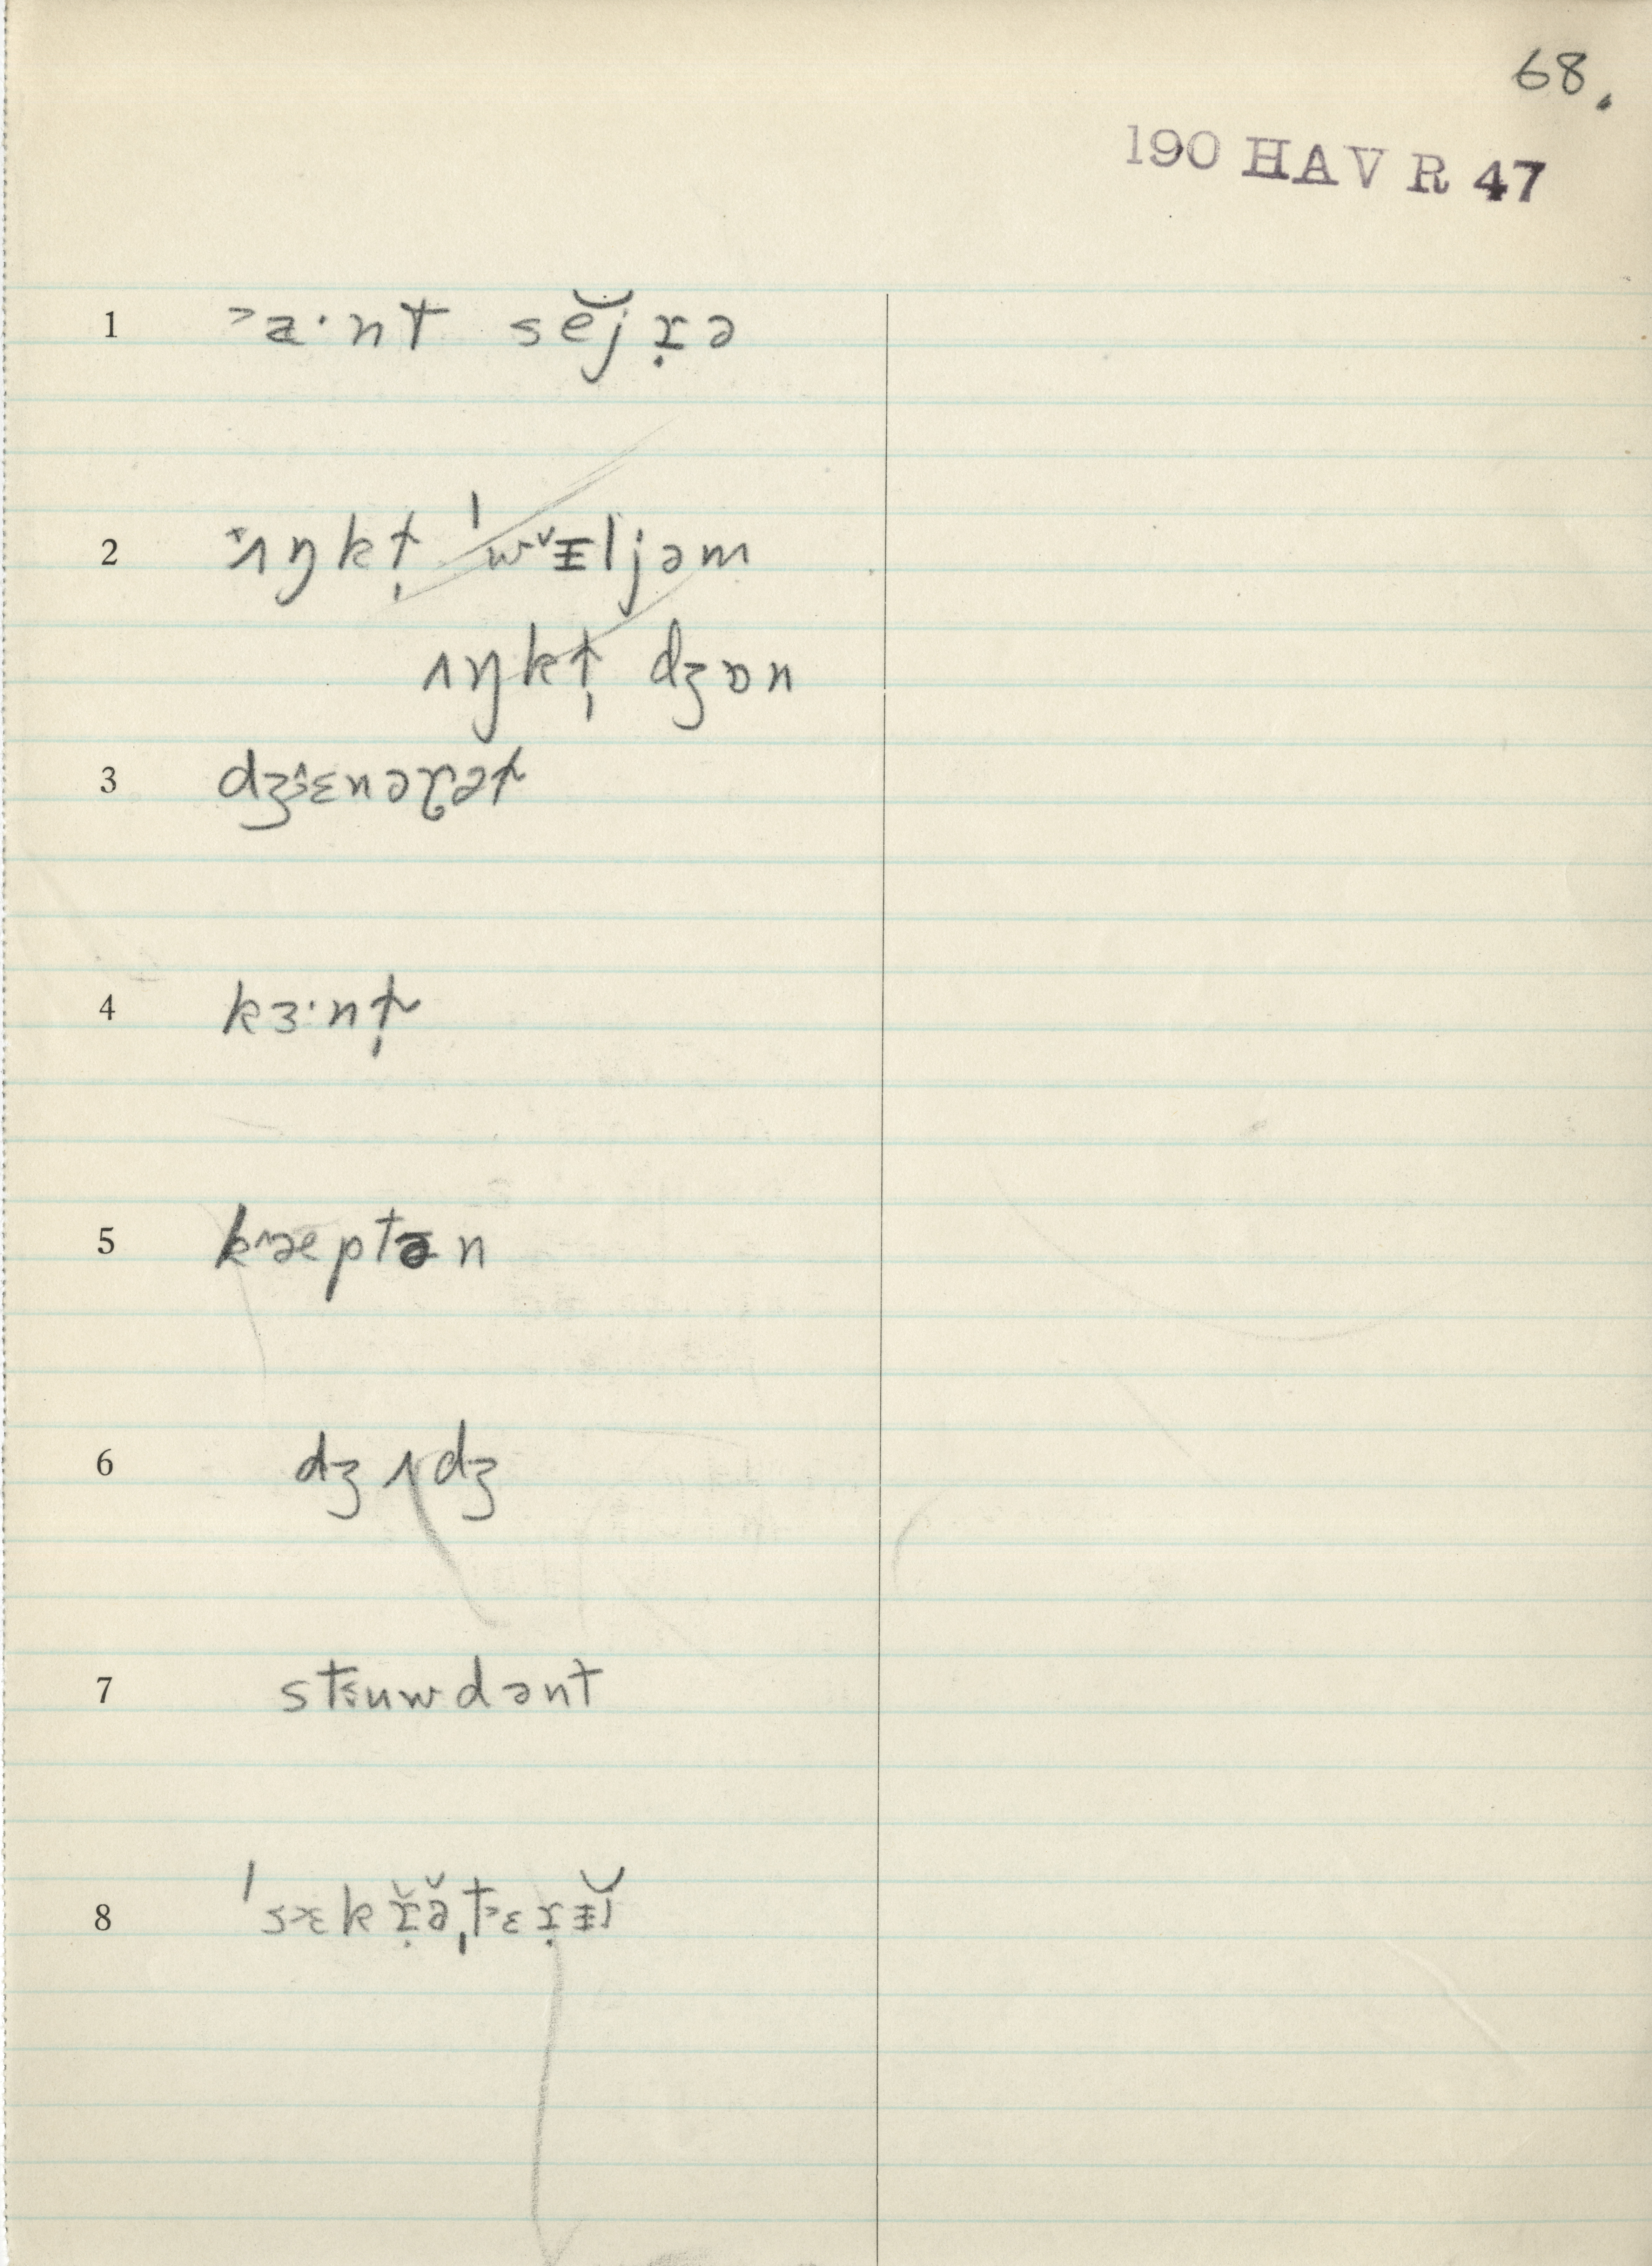 68.
190 HAV R 47
1 ˃a̵·nt sĕj̆ɹ̣ə
2 ˠʌŋkt̩ ˈwᵛɪ̵ljəm
ʌŋkt̩ dʒɒn
3 dʒ˄ɛnəɽət
4 kɜ·nt̩
5 k˄æptə̵n
6 dʒʌdʒ
7 st˂uwdənt
8 ˈs˃ɛkɹ̣̆ə̆ˌt˃ɛɹ̣ɪ̵j̆